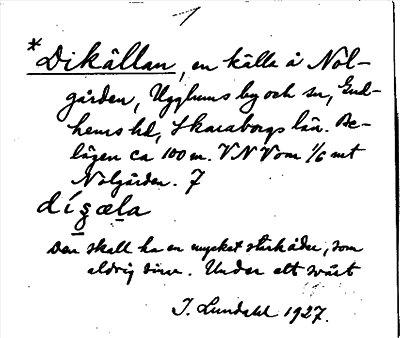 *Dikällan, en källa å Nol-
gården, Ugglums by och sn, Gud-
hems hd, Skaraborgs län. Be-
lägen ca 100 m. VNV om 1/6 mt
Nolgården. 7
díʒæla
Den skall ha en mycket stark åder, som
aldrig sinar. Under ett svårt
I. Lundahl 1927.